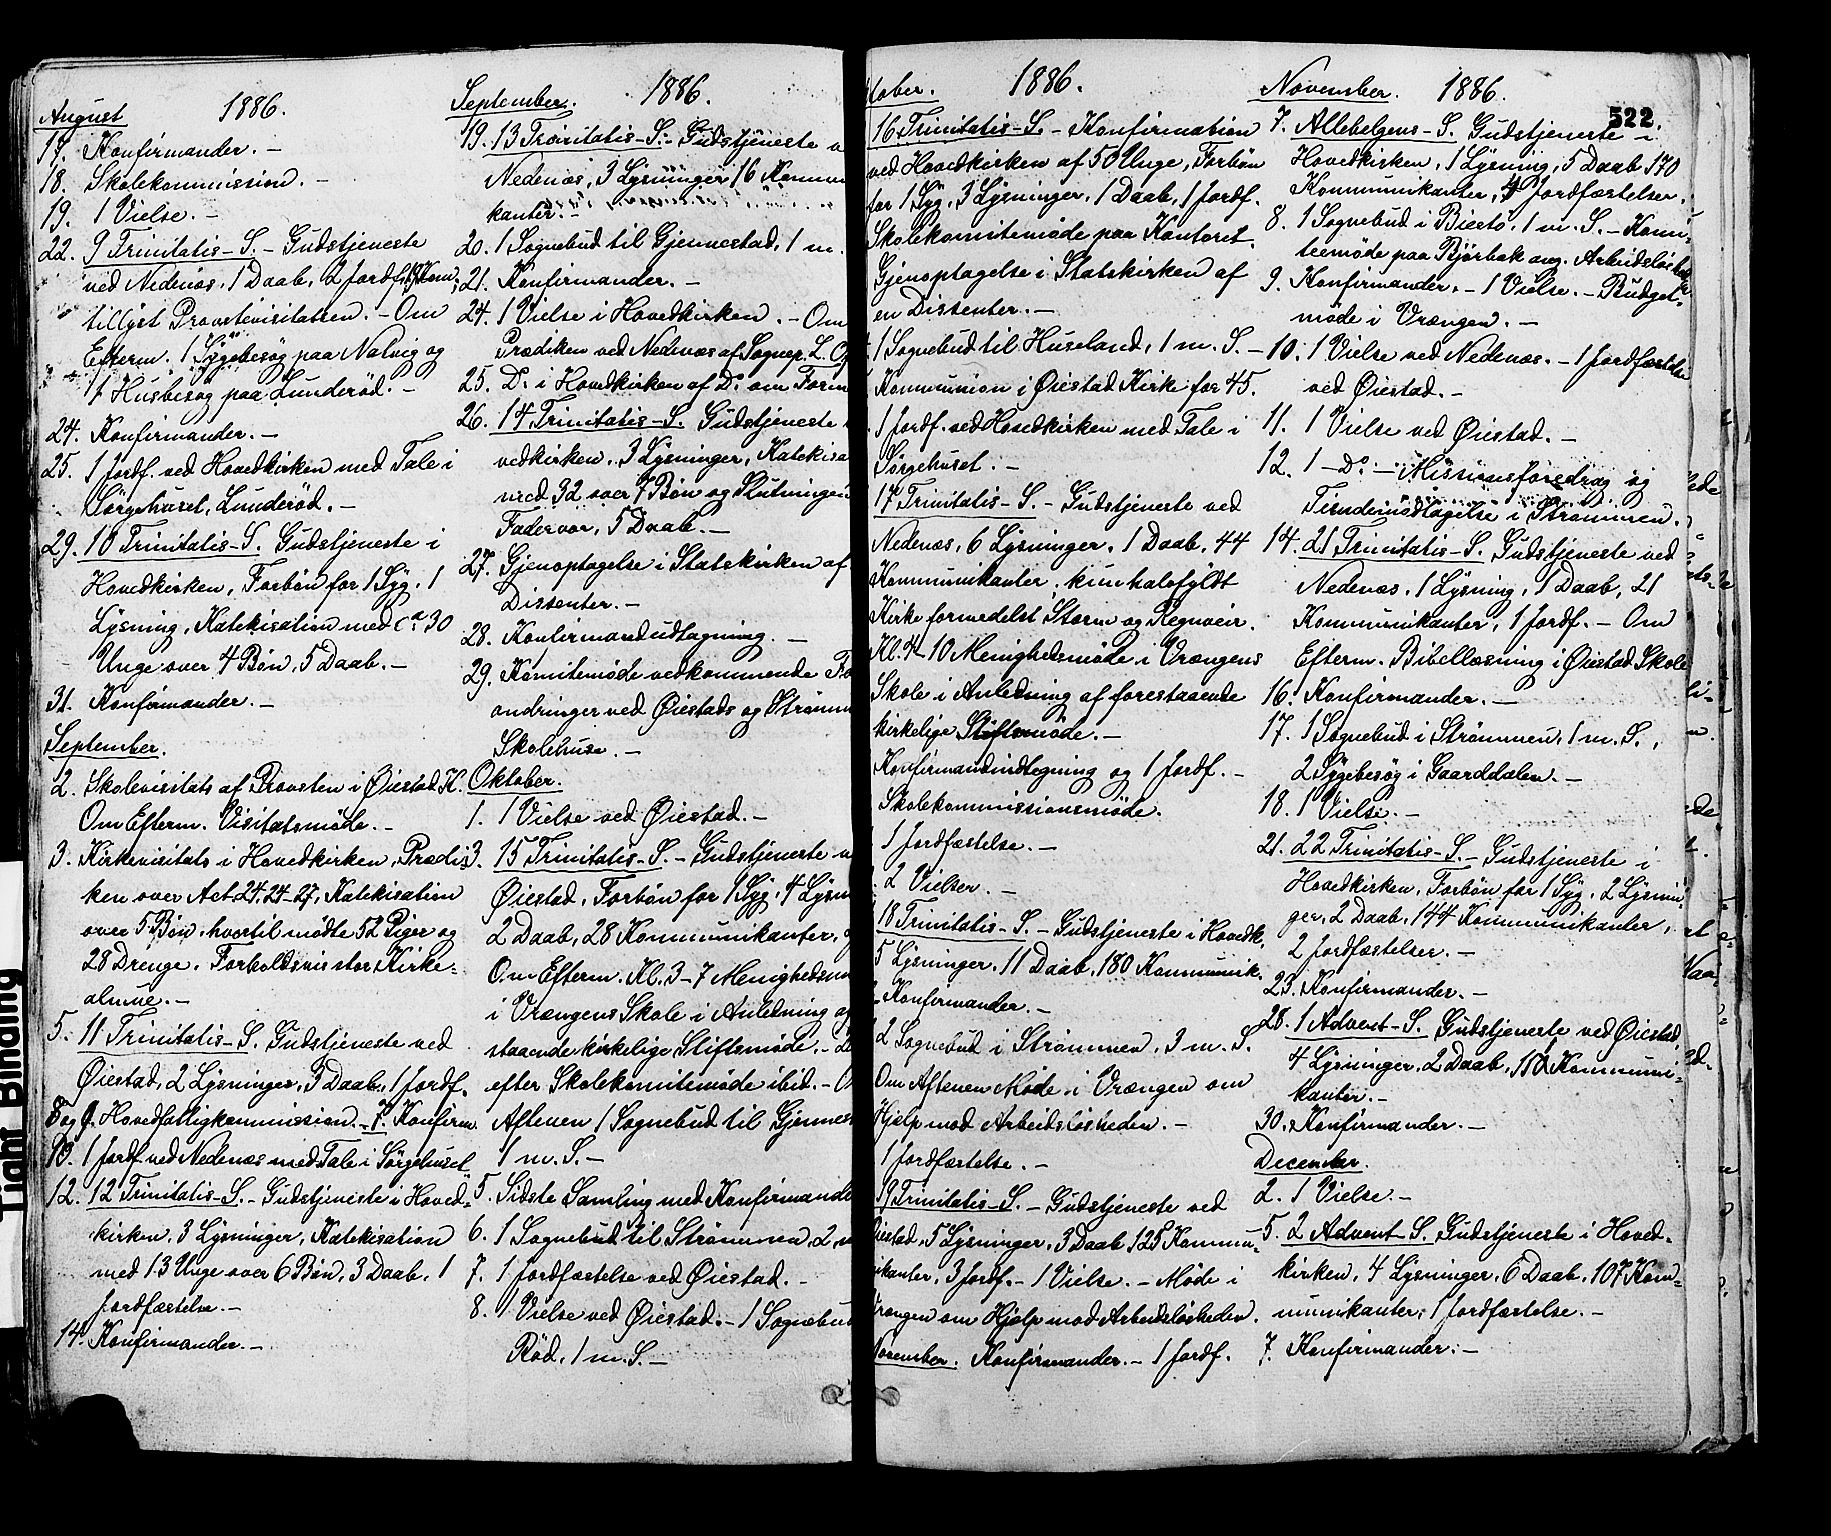 August 1886.
17. Konfirmander. –
18. Skolekommission. –
19. 1 Vielse. –
22. 9 Trinitatis-S. – Gudstjeneste
ved Nedenæs, 1 Daab, 2 Jordf.,
tillyst Provstevisitatsen. – Om
Efterm. 1 Sygebesøg paa Natvig og
1 Husbesøg paa Lunderød. –
24. Konfirmander. –
25. 1 Jordf. ved Hovedkirken med Tale i
Sørgehuset, Lunderød. –
29. 10 Trinitatis-S. Gudstjeneste i
Hovedkirken, Forbøn for 1 Syg, 1
Lysning, Katekisation med Ca 30
Unge over 4 Bøn, 5 Daab. –
31. Konfirmander. –
September.
2. Skolevisitats af Provsten i Øiestad K.
Om Efterm. Visitatsmøde. –
3. Kirkevisitats i Hovedkirken, Prædi-
ken over Act. 24. 24-27, Katekisation
over 5 Bøn, hvortil mødte 52 Piger og
28 Drenge. Forholdsvis stor Kirke-
almue. –
5. 11 Trinitatis-S. Gudstjeneste ved
Øiestad, 2 Lysninger, 3 Daab, 1 Jordf.
8 og 9. Hovedfattigkommission. – 7. Konfirm.
10. 1 Jordf. ved Nedenæs med Tale i Sørgehuset
12. 12 Trinitatis-S. – Gudstjeneste i Hoved-
kirken, 3 Lysninger, Katekisation
med 13 Unge over 6 Bøn, 3 Daab, 1
Jordfæstelse. –
14. Konfirmander. –
September. 1886.
19. 13 Trinitatis-S. – Gudstjeneste v
Nedenæs, 3 Lysninger, 16 Kommu
kanter. –
20. 1 Sognebud til Gjennestad, 1 m.
21. Konfirmander. –
24. 1 Vielse i Hovedkirken. – Om
Prædiken ved Nedenæs af Sognep. L. O
25. Do. i Hovedkirken af Do. om Form
26. 14 Trinitatis-S. Gudstjeneste
vedkirken, 3 Lysninger, Katekisa
med 32 over 7 Bøn og Slutningen
Fadervor, 5 Daab. –
27. Gjenoptagelse i Statskirken af
Dissenter. –
28. Konfirmandudtagning. –
29. Komitemøde vedkommende Fo
andringer ved Øiestads og Strømm
Skolehuse. –
Oktober.
1. 1 Vielse ved Øiestad. –
3. 15 Trinitatis-S. – Gudstjeneste v
Øiestad, Forbøn for 1 Syg, 4 Lysn
2 Daab, 28 Kommunikanter,
Om Efterm. Kl. 3-7 Menighedsm
i Vrængens Skole i Anledning a
staaende kirkelige Stiftsmøde. –
efter Skolekomitemøde ibid. –
Aftenen 1 Sognebud til Gjennes
1 m. S. –
5. Sidste Samling med Konfirmande
6. 1 Sognebud til Strømmen, 2
7. 1 Jordfæstelse ved Øiestad. –
8. 1 Vielse ved Øiestad. – 1 Sognebud
Rød, 1 m. S. –
tober. 1886.
16. Trinitatis-S. – Konfirmation
ved Hovedkirken af 50 Unge, Forbøn
for 1 Syg, 3 Lysninger, 1 Daab, 1 Jordf.
Skolekomitemøde paa Kontoret.
Gjenoptagelse i Statskirken af
en Dissenter. –
1 Sognebud til Huseland, 1 m. S. –
Kommunion i Øiestad Kirke for 45.
1 Jordf. ved Hovedkirken med Tale i
Sørgehuset. –
17 Trinitatis-S. – Gudstjeneste ved
Nedenæs, 6 Lysninger, 1 Daab, 44
Kommunikanter, kun halvfyldt
Kirke formedelst Storm og Regnveir.
Kl. 4-10 Menighedsmøde i Vrængens
Skole i Anledning af forestaaende
kirkelige Stiftsmøde. –
Konfirmandindtegning og 1 Jordf. –
Skolekommissionsmøde.
1 Jordfæstelse. –
2 Vielser. –
18 Trinitatis-S. – Gudstjeneste i Hovedk.
5 Lysninger, 11 Daab, 180 Kommunik.
Konfirmander. –
2 Sognebud i Strømmen, 3 m. S.
Om Aftenen Møde i Vrængen om
Hjælp mod Arbeidsløsheden. –
1 Jordfæstelse. –
19 Trinitatis-S. – Gudstjeneste ved
iestad, 5 Lysninger, 3 Daab, 125 Kommu-
nikanter, 3 Jordf. – 1 Vielse. – Møde i
rængen om Hjælp mod Arbeidsløsheden.
November. Konfirmander. – 1 Jordf.
November. 1886.
522.
7. Allehelgens-S. Gudstjeneste i
Hovedkirken, 1 Lysning, 5 Daab, 170
Kommunikanter, 4 Jordfæstelser.
8. 1 Sognebud i Biestø, 1 m. S. – Komi-
teemøde paa Bjørbak ang. Arbeidsløshed
9. Konfirmander. – 1 Vielse. – Budget-
møde i Vrængen. –
10. 1 Vielse ved Nedenæs. – 1 Jordfæstelse
ved Øiestad. –
11. 1 Vielse ved Øiestad. –
12. 1 – Do. – Missionsforedrag og
Tiendemodtagelse i Strømmen.
14. 21 Trinitatis-S. Gudstjeneste ved
Nedenæs, 1 Lysning, 1 Daab, 21
Kommunikanter, 1 Jordf. – Om
Efterm. Bibellæsning i Øiestad Skole
16. Konfirmander. –
17. 1 Sognebud i Strømmen, 1 m. S.,
2 Sygebesøg i Gaarddalen. –
18. 1 Vielse. –
21. 22 Trinitatis-S. – Gudstjeneste i
Hovedkirken, Forbøn for 1 Syg, 2 Lysnin-
ger, 2 Daab, 144 Kommunikanter,
2 Jordfæstelser. –
23. Konfirmander. –
28. 1 Advent-S. Gudstjeneste ved Øiestad,
4 Lysninger, 2 Daab, 110 Kommuni-
kanter. –
30. Konfirmander. –
December.
2. 1 Vielse. –
5. 2 Advent-S. Gudstjeneste i Hoved-
kirken, 4 Lysninger, 6 Daab, 107 Kom-
munikanter, 1 Jordfæstelse. –
7. Konfirmander. –
Tight Binding